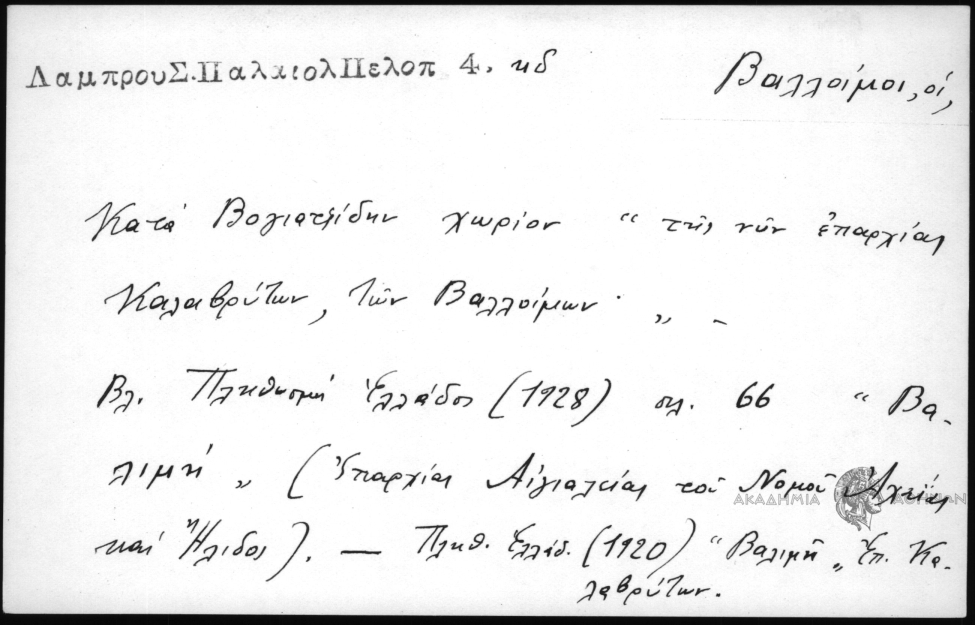 ΛαμπρουΣ.ΠαλαιολΠελοπ 4. κδ
Βαλλοίμοι, οἱ,
Κατὰ Βογιατζίδην χωρίον “ τῆς νῦν ἐπαρχίας
Καλαβρύτων, τῶν Βαλλοίμων „ -
Βλ. Πληθυσμὸς Ἑλλάδος (1928) σελ. 66 “ Βα-
λιμή „ (Ἐπαρχίας Αἰγιαλείας τοῦ Νομοῦ Ἀχαΐας
καὶ Ἤλιδος). — Πληθ. Ἑλλάδ. (1920) “ Βαλιμῆ „ Ἐπ. Κα-
λαβρύτων.
ΑΚΑΔΗΜΙΑ ΑΘΗΝΩΝ